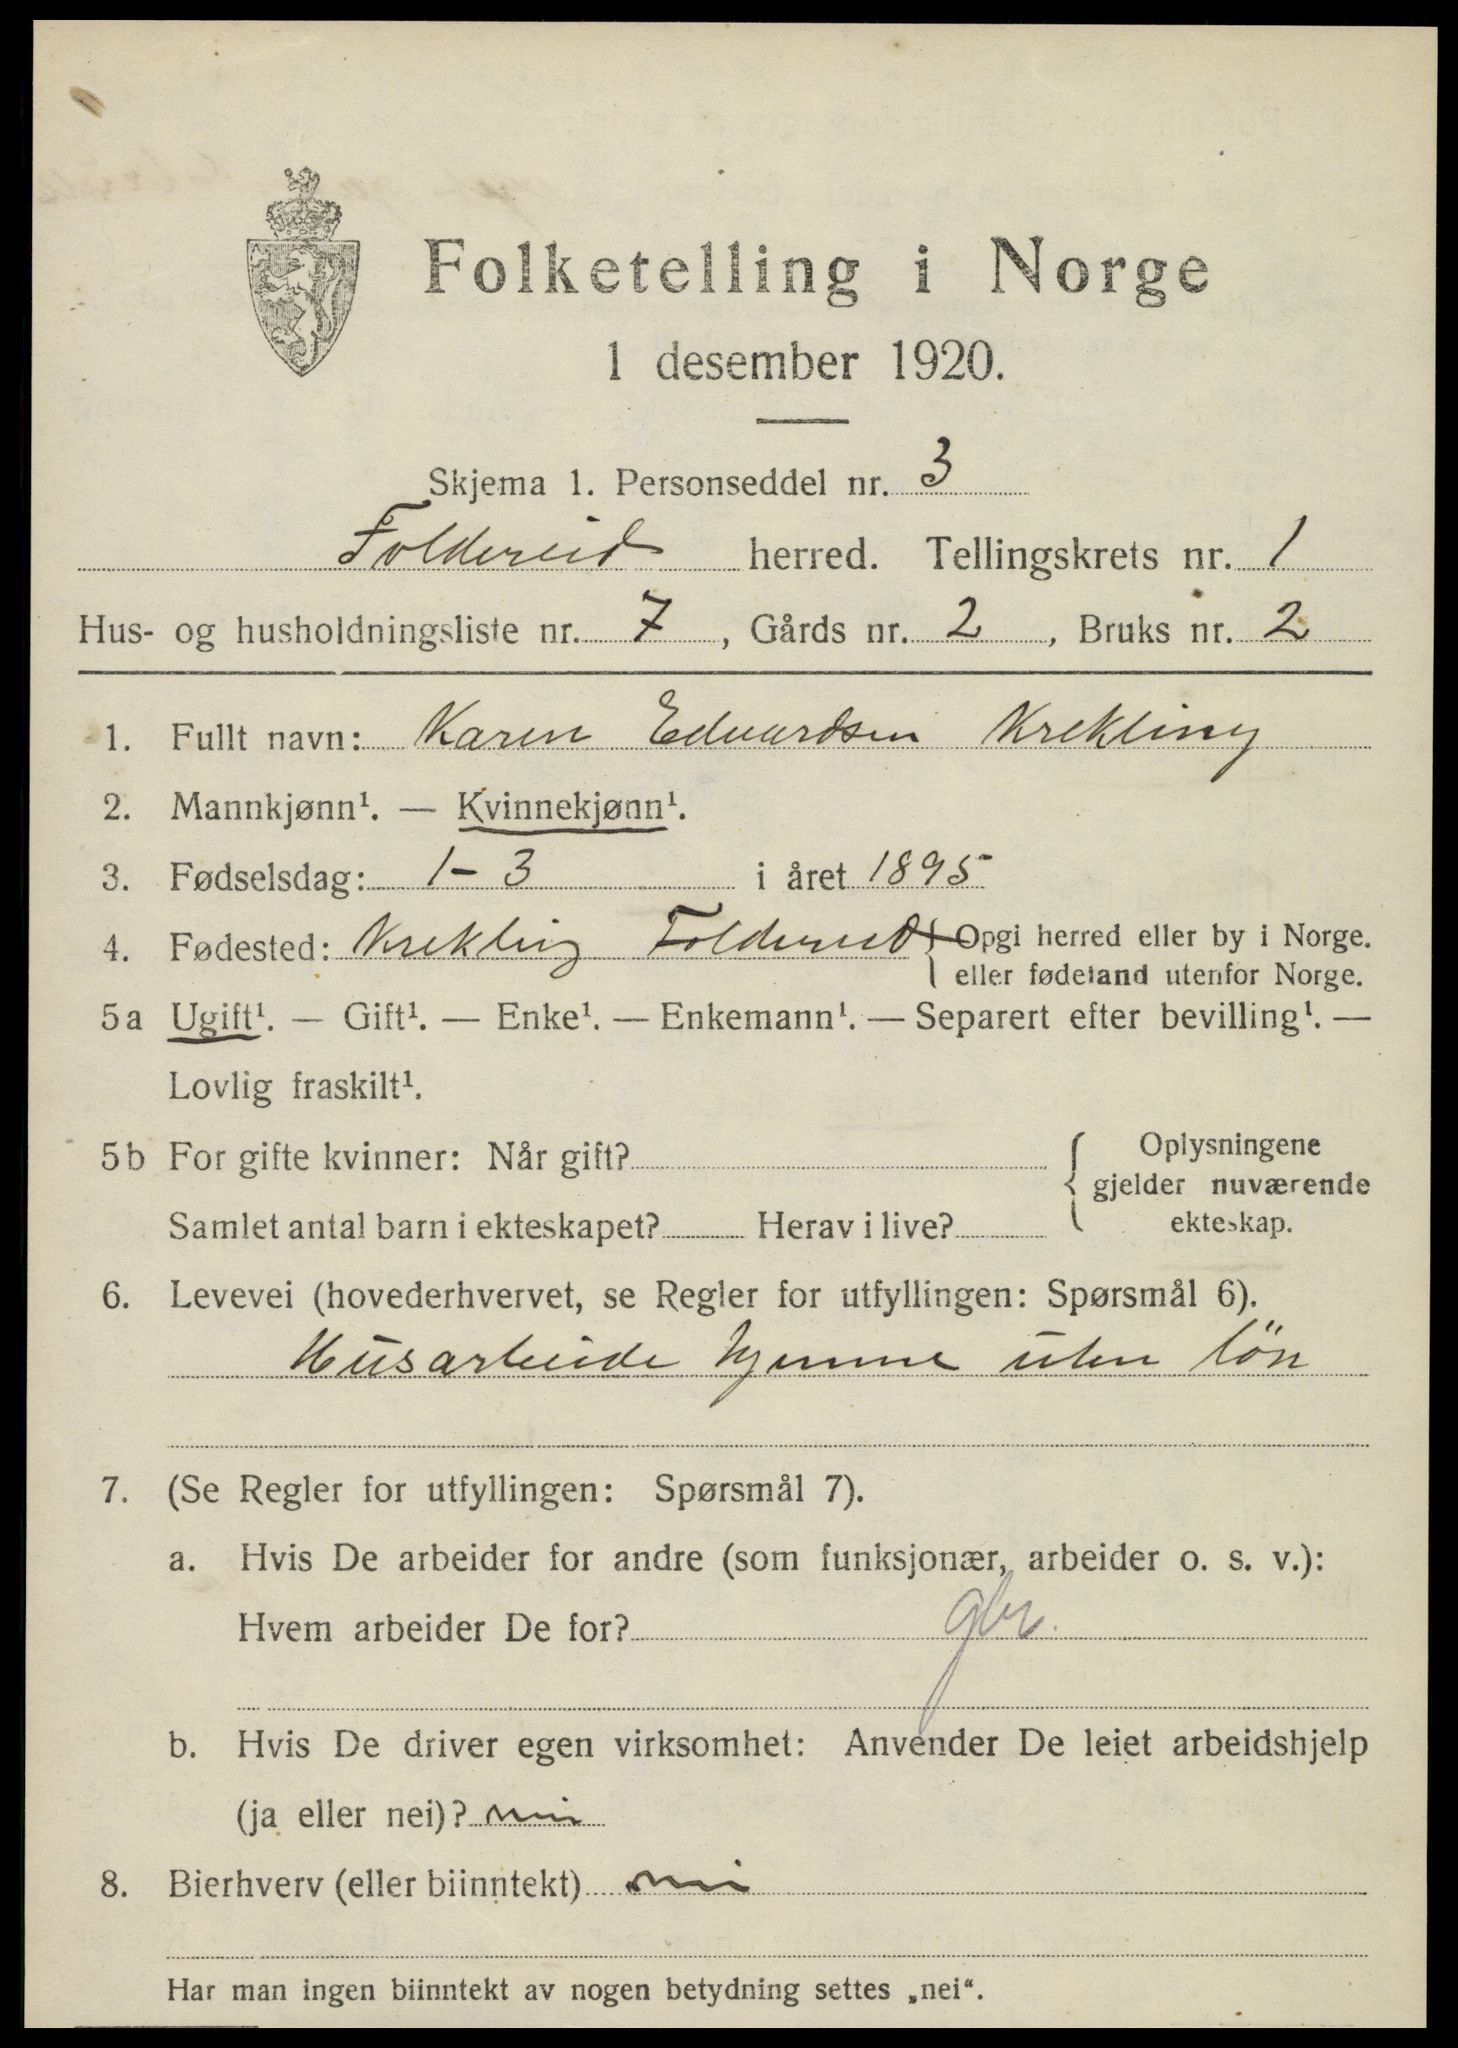 Folketelling i Norge
1 desember 1920.
Skjema 1. Personseddel nr. 3
Foldereid herred. Tellingskrets nr. 1
Hus- og husholdningsliste nr. 7, Gårds nr. 2, Bruks nr. 2
1. Fullt navn: Karen Edvardsen Krekling
2. Mannkjønn¹. — Kvinnekjønn¹.
3. Fødselsdag: 1-3 i året 1895
4. Fødested: Krekling Foldereid { Opgi herred eller by i Norge.
eller fødeland utenfor Norge.
5a Ugift¹. — Gift¹. — Enke¹. — Enkemann¹. — Separert efter bevilling¹. —
Lovlig fraskilt¹.
5b For gifte kvinner: Når gift?
Samlet antal barn i ekteskapet? Herav i live?
Oplysningene
gjelder nuværende
ekteskap.
6. Levevei (hovederhvervet, se Regler for utfyllingen: Spørsmål 6).
Husarbeide hjemme uten lön
7. (Se Regler for utfyllingen: Spørsmål 7).
a. Hvis De arbeider for andre (som funksjonær, arbeider o. s. v.):
Hvem arbeider De for? gbr.
b. Hvis De driver egen virksomhet: Anvender De leiet arbeidshjelp
(ja eller nei)? nei
8. Bierhverv (eller biinntekt) nei
Har man ingen biinntekt av nogen betydning settes „nei“.